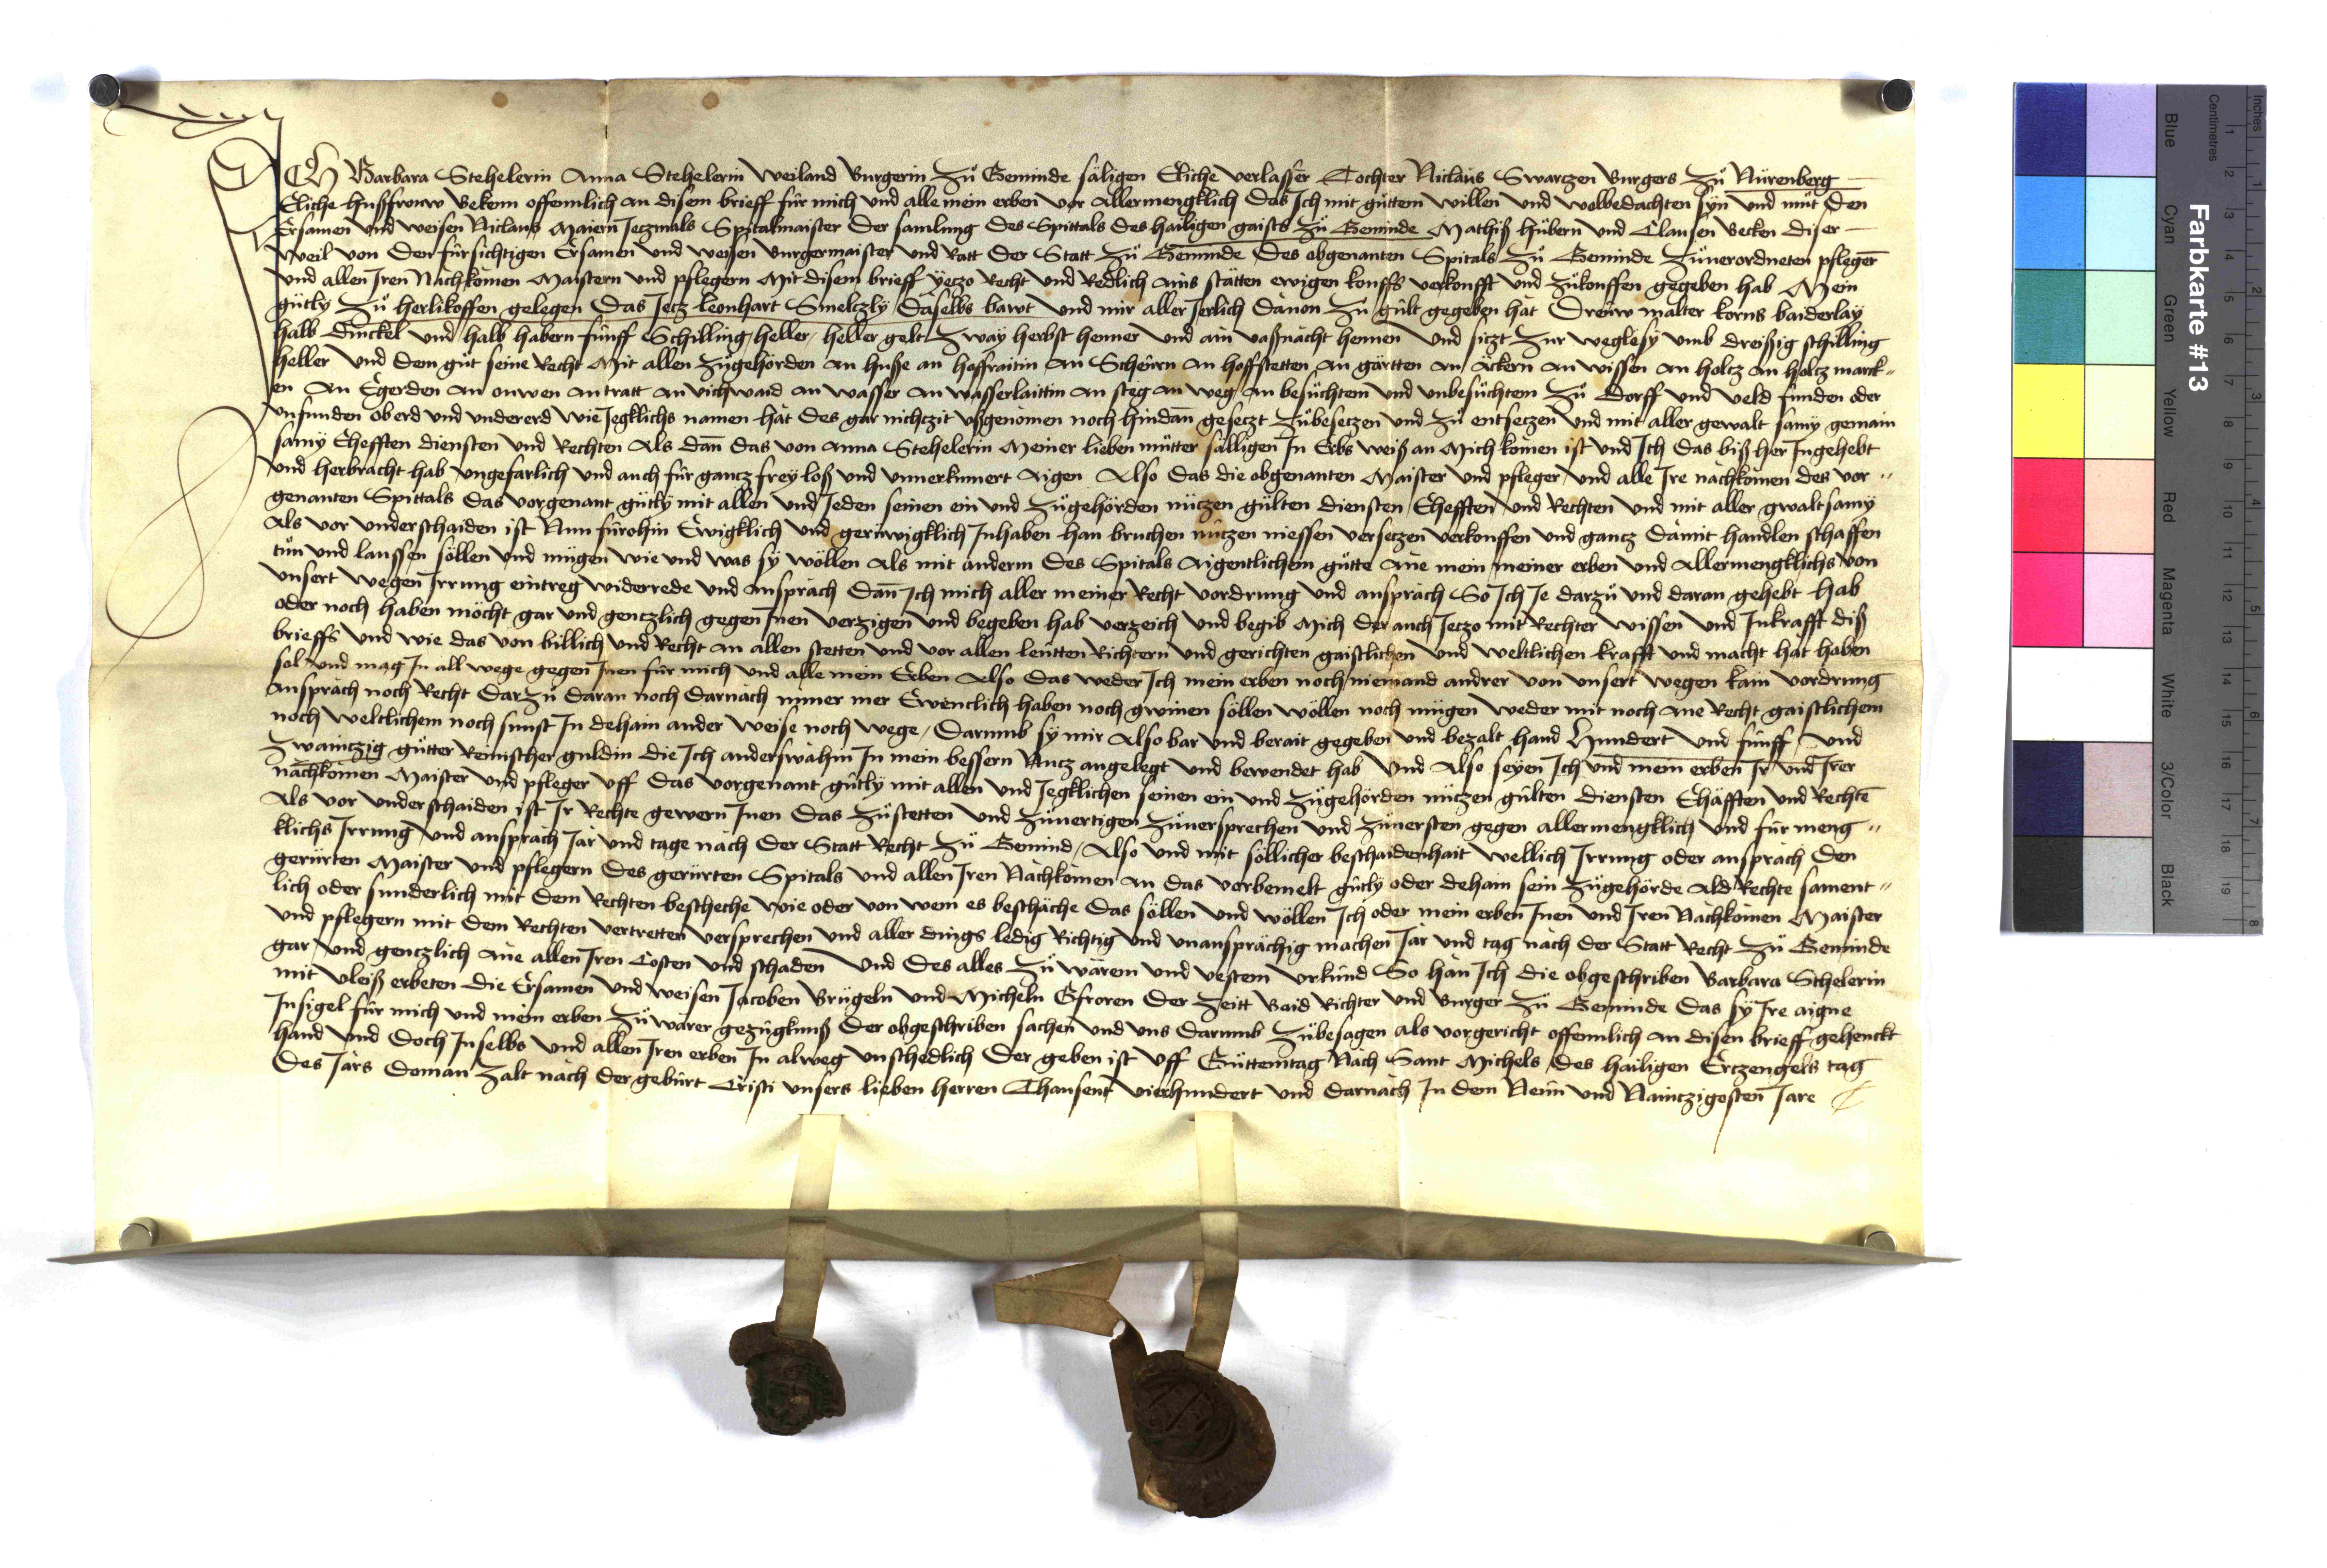 ICH Barbara Stehelerin Anna Stehelerin weiland Burgerin Zů Geminde säligen Eliche verlassēr Tochter Niclaus Swarczen Burgers Zů Nürenberg
Eliche hußfrouw Bekenn offennlich an disem brieff für mich und alle mein erben vor Allermengklich Das Ich mit gůttem willen und wolbedachten syn̄ und můt Den
Ersamen und weisen Niclaus Maiern Jeczmals Spitalmaister Der samlung des Spittals des hailigen gaists Zů Geminde Mathiß hůbern und Clausen Becken diser
Weil von Den fürsichtigen Ersamen und weisen Burgermaister und Ratt Der Statt Zů Geminde Des obgenanten Spitals Zů Geminde Zůuerordneten pfleger̄
und allen Iren Nachkomen Maistern und pflegern Mit disem brieff yeczo Recht und Redlich ains stätten ewigen kouffs verkoufft und Zůkouffen gegeben hab Mein
gůtly Zů herlikoffen gelegen Das Jecz leonhart Smelczly Daselbs bawt und mir aller Jerlich Dauon Zů gült gegeben hat Dreüw malter korns baiderlay
halb Dinckel und halb habern fünff Schilling heller heller gelt Zway herbst henner und ain vaßnacht hennen und siczt Zur weglösy umb dreißig schilling
heller und Dem gůt seine Recht Mit allen Zůgehörden an huße an hofraitin an Scheurn an hoffstetten an gärtten an Äckern an wissen an holcz an holcz marck"
en an Egerden an ouwen an tratt an vichwaid an wasser an wasserlaittin an steg an weg an besůchtem und unbesůchtem Zů Dorff und veld funden oder
unfunden oberd und undererd wie Jegklichs namen hat des gar nichzit ußgenomen noch hindan̄ gesetzt Zůbesetzen und Zů entsetzen und mit aller gewalt samy gemain
samy Ehefften diensten und Rechten Als dan̄ das von Anna Stehelerin Meiner lieben můtter sälligen In Erbs weiß an Mich komen ist und Ich Das biß her Ingehebt
und herbracht hab ungefarlich und auch für gancz frey loß und unuerkumert Aigen Also Das die obgenanten Maister und pfleger und alle Ire nachkomen des vor"
genanten Spittals Das vorgenant gůtly mit allen und Jeden seinen ein und Zůgehörden nüczen gülten diensten Ehefften und Rechten und mit aller gwaltsamy
Als vor underschaiden ist Nun fürohin Ewigklich und gerüwigklich Inhaben han bruchen nüczen niessen verseczen verkouffen und gancz Damit handlen schaffen
tůn und laussen söllen und mügen wie und was sy wöllen Als mit anderm Des Spitals Aigentlichem gůtte Ane mein meiner erben und Allermengklichs von
unsert wegen Irrung eintreg widerrede und ansprach Dan̄ Ich mich aller meiner Recht vordrung und ansprach So Ich Je darzů und daran gehebt hab
oder noch haben möcht gar und genczlich gegen Inen verzigen und begeben hab verzeich und begib Mich Der auch Jeczo mit Rechter wissen und Inkrafft diß
brieffs und wie das von billich und Recht an allen stetten und vor allen leutten Richtern und gerichten gaistlichen und weltlichen krafft und macht hat haben
sol und mag In all wege gegen Inen für mich und alle mein Erben Also Das weder Ich mein erben noch niemand andrer von unsert wegen kain vordrung
ansprach noch Recht Darzů Daran noch Darnach nimer mer Ewenclich haben noch gwinen söllen wöllen noch mügen weder mit noch ane Recht gaistlichem
noch weltlichem noch sunst In dehain ander weise noch wege Darumb sy mir Also bar und berait gegeben und bezalt hand Hundert und fünff und
Zwainczig gůtter Reinischer guldin die Ich anderswahin In mein bessern Nucz angelegt und bewendet hab Und Also seyen Ich und mein erben Ir und Irer
nachkomen Maister und pfleger uff Das vorgenant gůtly mit allen und Jegklichen seinen ein und Zůgehörden nüczen gülten diensten Ehäfften und Rechtē
Als vor underschaiden ist Ir Rechte gewern Inen Das Zůstetten und Zůuertigen Zůuersprechen und Zůuersten gegen allermengklich und für meng"
klichs Irrung und ansprach Jar und tage nach Der Statt Recht Zů Gemind Also und mit söllicher beschaidenhait wellich Irrung oder ansprach Den
gerürten Maister und pflegern Des gerürten Spitals und allen Iren Nachkomen an Das vorbemelt gůtly oder dehain sein Zůgehörde Ald Rechte sament"
lich oder sunderlich mit Dem Rechten beschehe wie oder von wem es beschäche Das söllen und wöllen Ich oder mein erben Inen und Iren Nachkomen Maister
und pflegern mit Dem Rechten vertretten versprechen und aller Dings ledig Richtig und unansprächig machen Jar und tag nach Der Statt Recht Zů Geminde
gar und genczlich Ane allen Iren Costen und schaden Und Des alles Zů warem und vestem urkund So han Ich Die obgeschriben Barbara Stehelerin
mit vleiß erbeten Die Ersamen und weisen Jacoben Brügeln und Micheln Gfroren Der Zeitt Baid Richter und Burger Zů Geminde Das sy Ire aigne
Insigel für mich und mein erben Zů warer gezügknuß Der obgeschriben sachen und uns Darumb Zůbesagen als vorgericht offennlich an disen brieff gehenckt
hand und Doch In selbs und allen Iren erben In alweg unschedlich Der geben ist uff Gůttemtag Nach Sant Michels Des hailigen Erczengels tag
Des Jars Do man Zalt nach Der geburt Cristi unsers lieben herren Thausent vierhundert und Darnach In Dem Neun und Nainczigosten Jare

Farbkarte #13
Blue Cyan Green Yellow Red Magenta White 3/Color Black
Centimetres 1 2 3 4 5 6 7 8 9 10 11 12 13 14 15 16 17 18 19
Inches 1 2 3 4 5 6 7 8